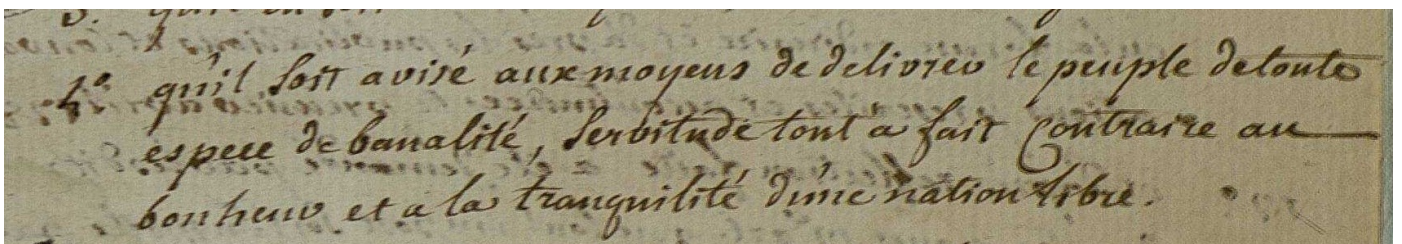 4° qu'il soit avisé aux moyens de delivrer le peuple de toute
espece de banalité, servitude tout a fait contraire au
bonheur et a la tranquilité d'une nation libre.